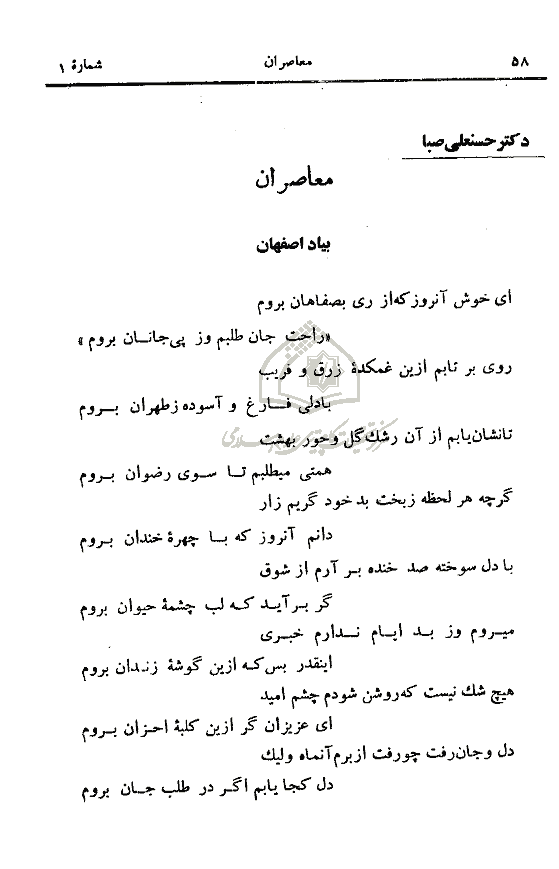 ۵۸ معاصران شمارهٔ ۱
دکتر حسنعلی صبا
معاصران
بیاد اصفهان
ای خوش آنروز که از ری بصفاهان بروم
«راحت جان طلبم وز پی جانان بروم»
روی بر تابم ازین غمکدهٔ زرق و فریب
بادلی فارغ و آسوده ز طهران بروم
تانشان یابم از آن رشك گل و حور بهشت
همتی میطلبم تا سوی رضوان بروم
گرچه هر لحظه زبخت بد خود گریم زار
دانم آنروز که با چهرهٔ خندان بروم
با دل سوخته صد خنده بر آرم از شوق
گر برآید که لب چشمهٔ حیوان بروم
میروم وز بد ایام ندارم خبری
اینقدر بس که ازین گوشهٔ زندان بروم
هیچ شك نیست که روشن شودم چشم امید
ای عزیزان گر ازین کلبهٔ احزان بروم
دل وجان رفت چورفت از برم آنماه ولیك
دل کجا یابم اگر در طلب جان بروم